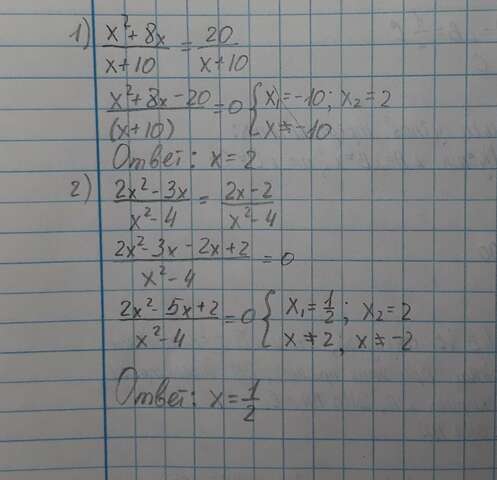 1) (x²+8x)/(x+10) = 20/(x+10)
(x²+8x-20)/(x+10) = 0 { x₁=-10; x₂=2
x≠-10
Ответ: x=2
2) (2x²-3x)/(x²-4) = (2x-2)/(x²-4)
(2x²-3x-2x+2)/(x²-4) = 0
(2x²-5x+2)/(x²-4) = 0 { x₁=1/2; x₂=2
x≠2; x≠-2
Ответ: x=1/2